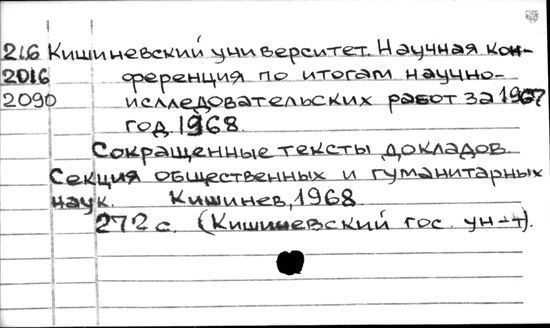 216 Кишиневский университет. Научная кон-
2016 ференция по итогам научно-
2090 исследовательских работ за 1967
год. 1968.
Сокращенные тексты докладов.
Секция общественных и гуманитарных
наук. Кишинев, 1968.
272 с. (Кишиневский гос. ун-т).